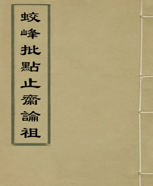 蛟峰批點止齋論祖